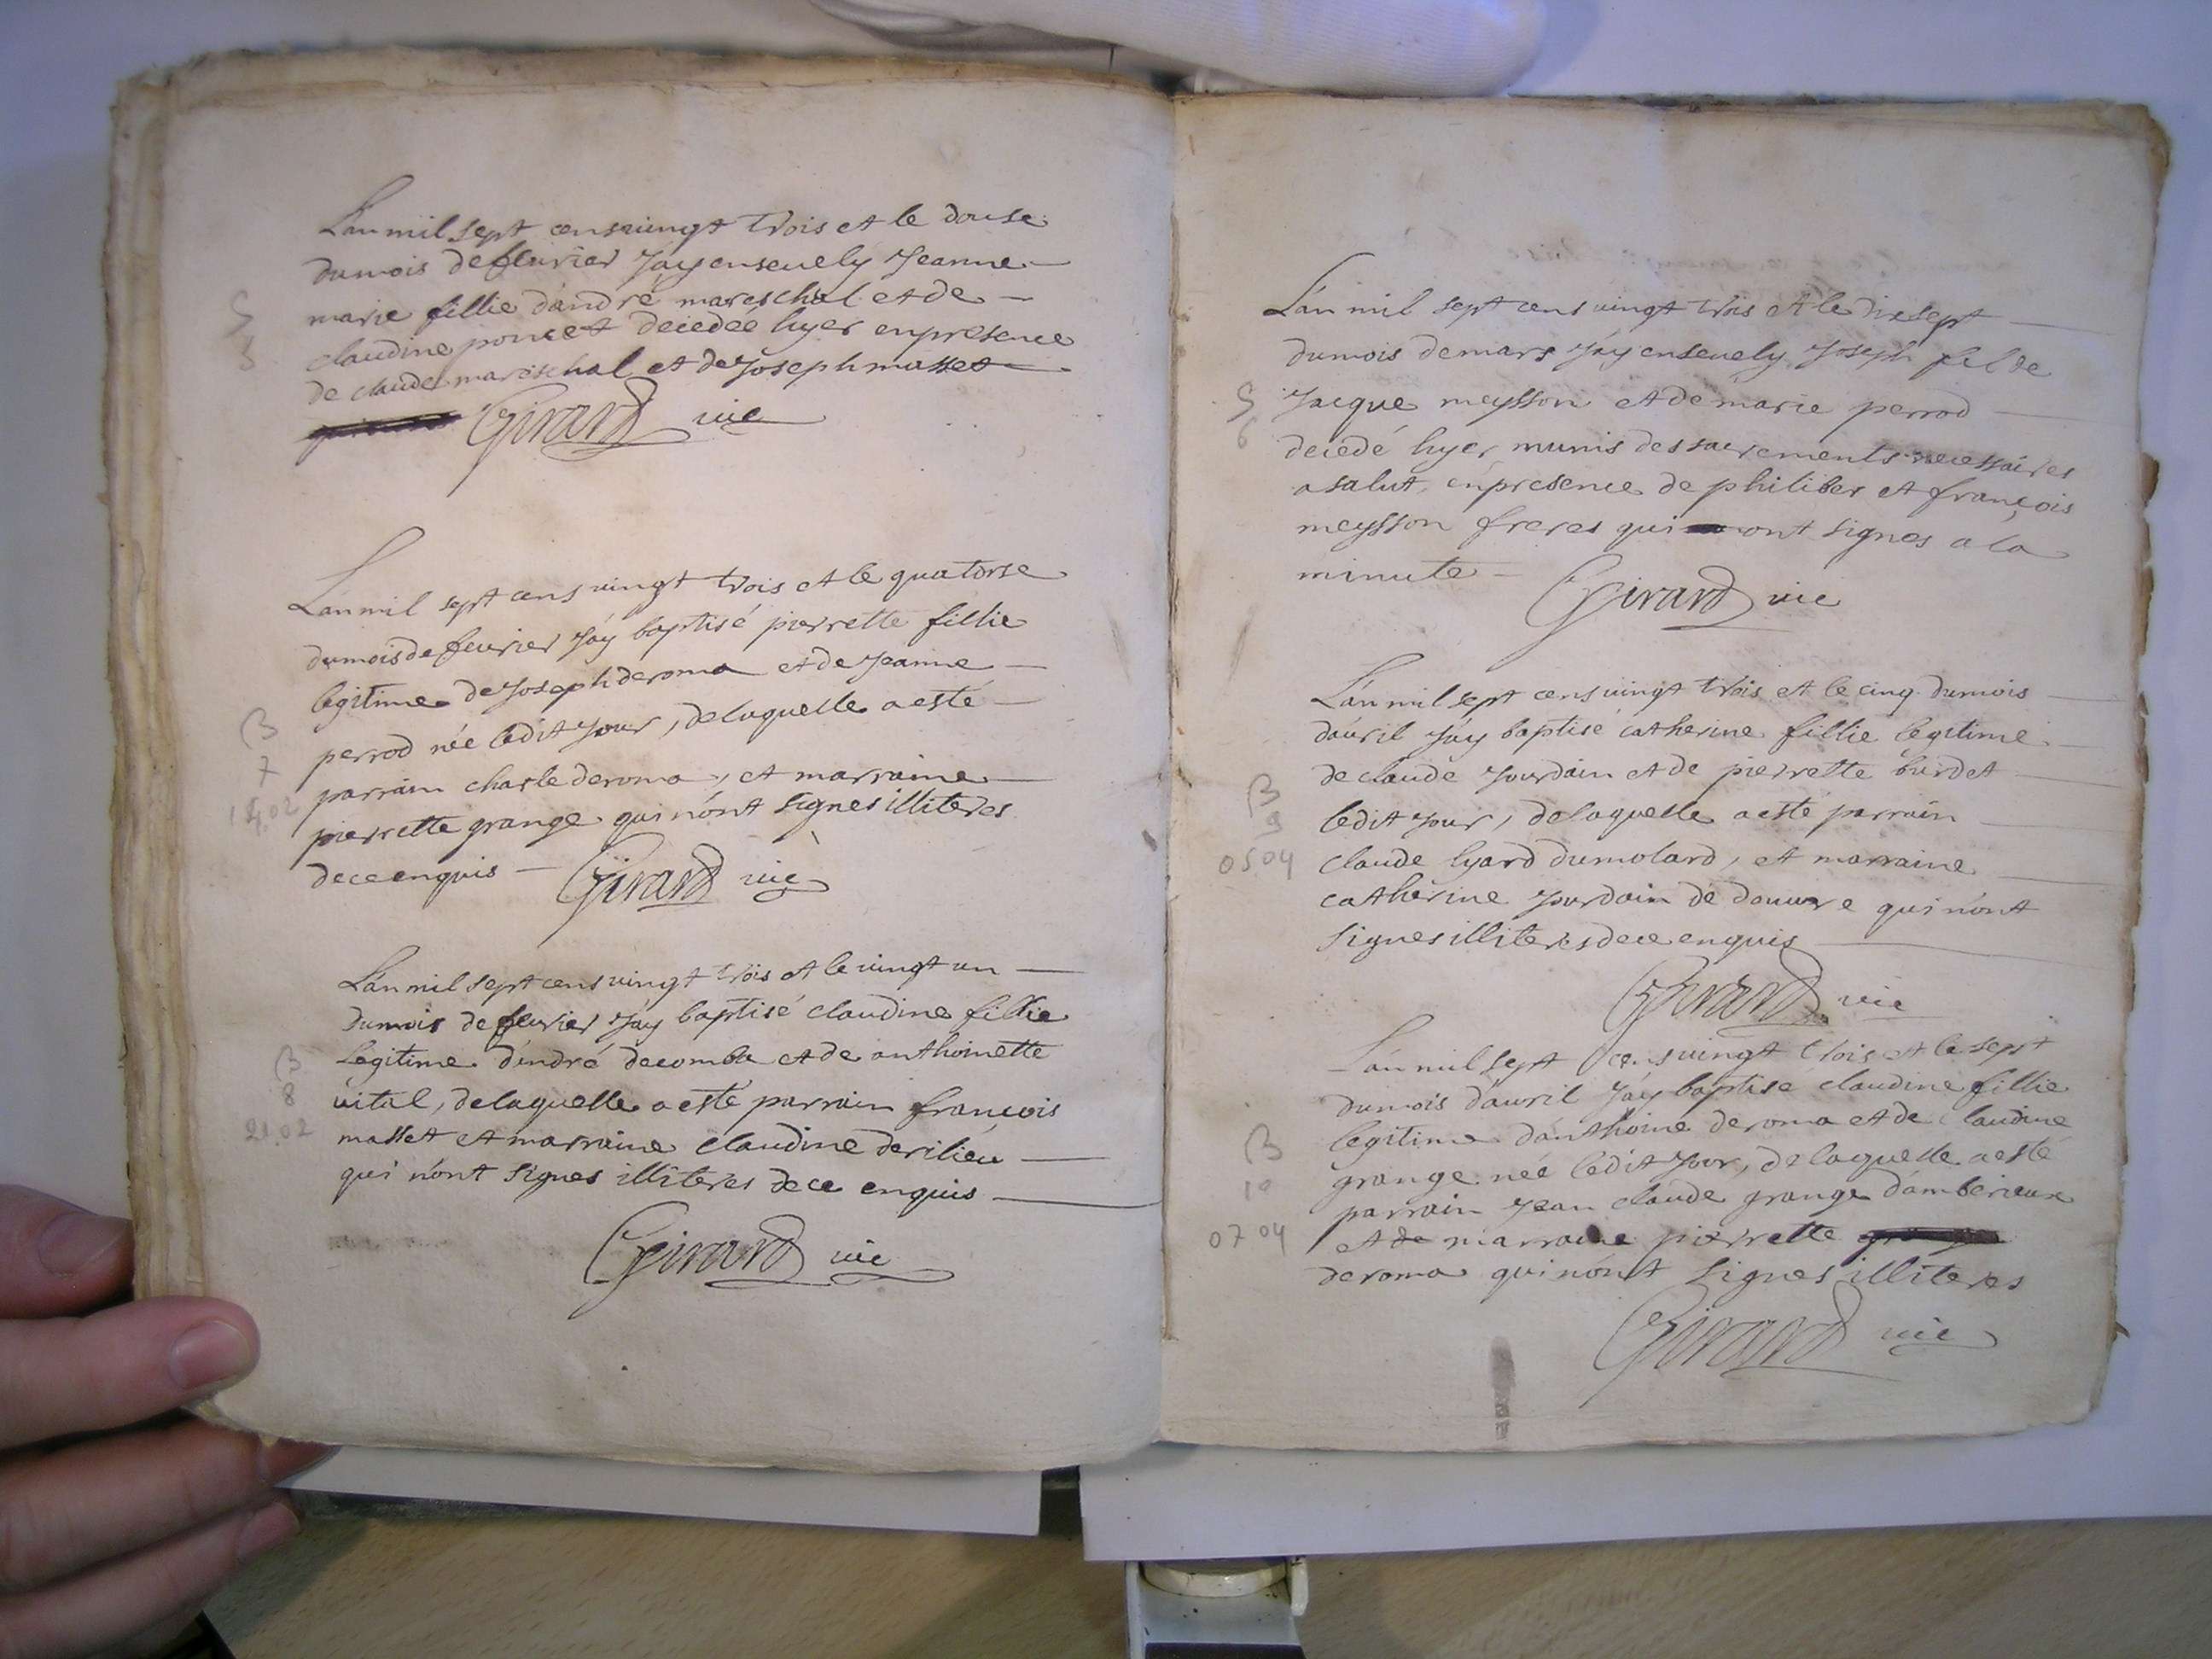 L'an mil sept cens vingt trois et le douse
du mois de feurier j'ay enseuely Jeanne
marie fillie d'andré mareschal et de
S
5
claudine poncet decedeé hyer en presence
de claude mareschal et de Joseph masset
Girard vic
L'an mil sept cens vingt trois et le quatorse
du mois de feurier j'ay baptisé pierrette fillie
legitime de Joseph deroma et de Jeanne
B
7
14.02
perrod née ledit jour, de laquelle a esté
parrain charle deroma, et marraine
pierrette grange qui n'ont signes illiteres
de ce enquis Girard vic
L'an mil sept cens vingt trois et le vingt un
du mois de feurier j'ay baptisé claudine fillie
legitime d'endré decombe et de anthoinette
B
8
21.02
vital, de laquelle a esté parrain françois
masset et marraine claudine derilieu
qui n'ont signes illiteres de ce enquis
Girard vic
L'an mil sept cens vingt trois et le dix sept
du mois de mars j'ay enseuely Joseph fel de
S
6
Jacque meysson et de marie perrod
decedé hyer munis des sacrements necessaires
a salut, en presence de philiber et françois
meysson freres qui ont signes a la
minute Girard vic
L'an mil sept cens vingt trois et le cinq du mois
d'auril j'ay baptisé catherine fillie legitime
de claude Jourdain et de pierrette burdet
B
9
05 04
ledit jour, de laquelle a esté parrain
claude lyard du molard, et marraine
catherine Jourdain de douure qui n'ont
signes illiteres de ce enquis
Girard vic
L'an mil sept cens vingt trois et le sept
du mois d'auril j'ay baptisé claudine fillie
legitime d'anthoine deroma et de Claudine
B
10
07 04
grange née ledit jour, de laquelle a esté
parrain Jean claude grange d'amberieux
et de marraine pierrette
deroma qui n'ont signes illiteres
Girard vic